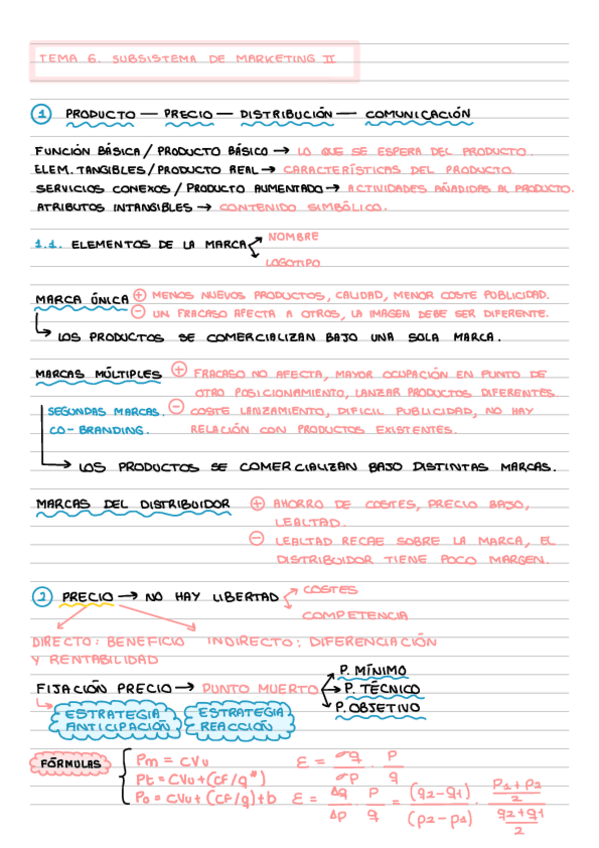 TEMA 6. SUBSISTEMA DE MARKETING II
1 PRODUCTO — PRECIO — DISTRIBUCIÓN — COMUNICACIÓN
FUNCIÓN BÁSICA / PRODUCTO BÁSICO → LO QUE SE ESPERA DEL PRODUCTO.
ELEM. TANGIBLES / PRODUCTO REAL → CARACTERÍSTICAS DEL PRODUCTO.
SERVICIOS CONEXOS / PRODUCTO AUMENTADO → ACTIVIDADES AÑADIDAS AL PRODUCTO.
ATRIBUTOS INTANGIBLES → CONTENIDO SIMBÓLICO.
1.1. ELEMENTOS DE LA MARCA
NOMBRE
LOGOTIPO
MARCA ÚNICA + MENOS NUEVOS PRODUCTOS, CALIDAD, MENOR COSTE PUBLICIDAD.
- UN FRACASO AFECTA A OTROS, LA IMAGEN DEBE SER DIFERENTE.
LOS PRODUCTOS SE COMERCIALIZAN BAJO UNA SOLA MARCA.
MARCAS MÚLTIPLES + FRACASO NO AFECTA, MAYOR OCUPACIÓN EN PUNTO DE
OTRO POSICIONAMIENTO, LANZAR PRODUCTOS DIFERENTES
SEGUNDAS MARCAS. - COSTE LANZAMIENTO, DIFICIL PUBLICIDAD, NO HAY
CO-BRANDING. RELACIÓN CON PRODUCTOS EXISTENTES.
LOS PRODUCTOS SE COMERCIALIZAN BAJO DISTINTAS MARCAS.
MARCAS DEL DISTRIBUIDOR + AHORRO DE COSTES, PRECIO BAJO,
LEALTAD.
- LEALTAD RECAE SOBRE LA MARCA, EL
DISTRIBUIDOR TIENE POCO MARGEN.
2 PRECIO → NO HAY LIBERTAD
COSTES
COMPETENCIA
DIRECTO: BENEFICIO INDIRECTO: DIFERENCIACIÓN
Y RENTABILIDAD
FIJACIÓN PRECIO → PUNTO MUERTO
P. MÍNIMO
P. TÉCNICO
P. OBJETIVO
ESTRATEGIA ANTICIPACIÓN
ESTRATEGIA REACCIÓN
FÓRMULAS
Pm = CVu
Pt = CVu + (CF/q*)
Po = CVu + (CF/q) + b
ε = σq/σp · p/q
ε = Δq/Δp · p/q = (q2-q1)/(p2-p1) · (p1+p2)/2 / (q2+q1)/2